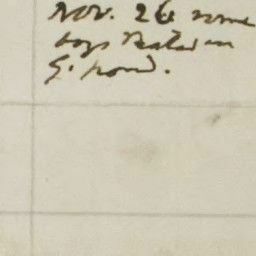 Nov. 26 some
boys skated on
G. pond.